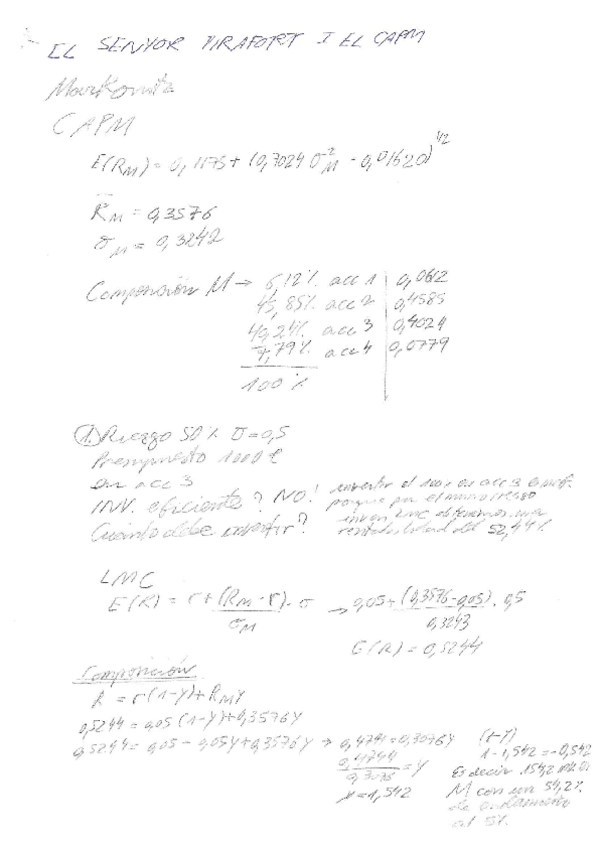 EL SENYOR VIRAFORT I EL CAPM
Markowitz
CAPM
E(R_M) = 0,1175 + (0,7024 σ²_M - 0,01620)^1/2
R̄_M = 0,3576
σ_M = 0,3242
Composición M → 6,12% acc 1 | 0,0612
45,85% acc 2 | 0,4585
40,24% acc 3 | 0,4024
7,79% acc 4 | 0,0779
100%
① Riesgo 50% σ=0,5
Presupuesto 1000€
en acc 3
INV. eficiente? NO! invertir el 100% en acc 3
porque por el mismo riesgo
Cuánto debe invertir? en LMC obtenemos una
rentabilidad del 52,44%
LMC
E(R) = r + (R_M - r) / σ_M · σ → 0,05 + (0,3576 - 0,05) / 0,3243 · 0,5
E(R) = 0,5244
Composición
R = r(1-y) + R_M y
0,5244 = 0,05 (1-y) + 0,3576y
0,5244 = 0,05 - 0,05y + 0,3576y → 0,4744 = 0,3076y
0,4744 / 0,3076 = y
y = 1,542
(1-y)
1 - 1,542 = -0,542
Es decir 154,2
M con un 54,2%
de endeudamiento
al 5%.